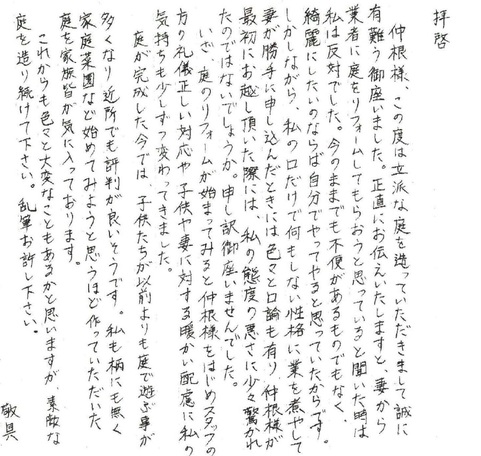 拝啓
仲根様、この度は立派な庭を造っていただきまして誠に
有難う御座いました。正直にお伝えいたしますと、妻から
業者に庭をリフォームしてもらおうと思っていると聞いた時は
私は反対でした。今のままでも不便があるものでもなく、
綺麗にしたいのならば自分でやってやると思っていたからです。
しかしながら、私の口だけで何もしない性格に業を煮やして
妻が勝手に申し込んだときには色々と口論も有り、仲根様が
最初にお越し頂いた際には、私の態度の悪さに少々驚かれ
たのではないでしょうか。申し訳御座いませんでした。
いざ、庭のリフォームが始まってみると仲根様をはじめスタッフの
方の礼儀正しい対応や子供や妻に対する暖かい配慮に私の
気持ちも少しずつ変わってきました。
庭が完成した今では、子供たちが以前よりも庭で遊ぶ事が
多くなり近所でも評判が良いそうです。私も柄にも無く
家庭菜園など始めてみようと思うほど作っていただいた
庭を家族皆が気に入っております。
これからも色々と大変なこともあるかと思いますが、素敵な
庭を造り続けて下さい。乱筆お許し下さい。
敬具